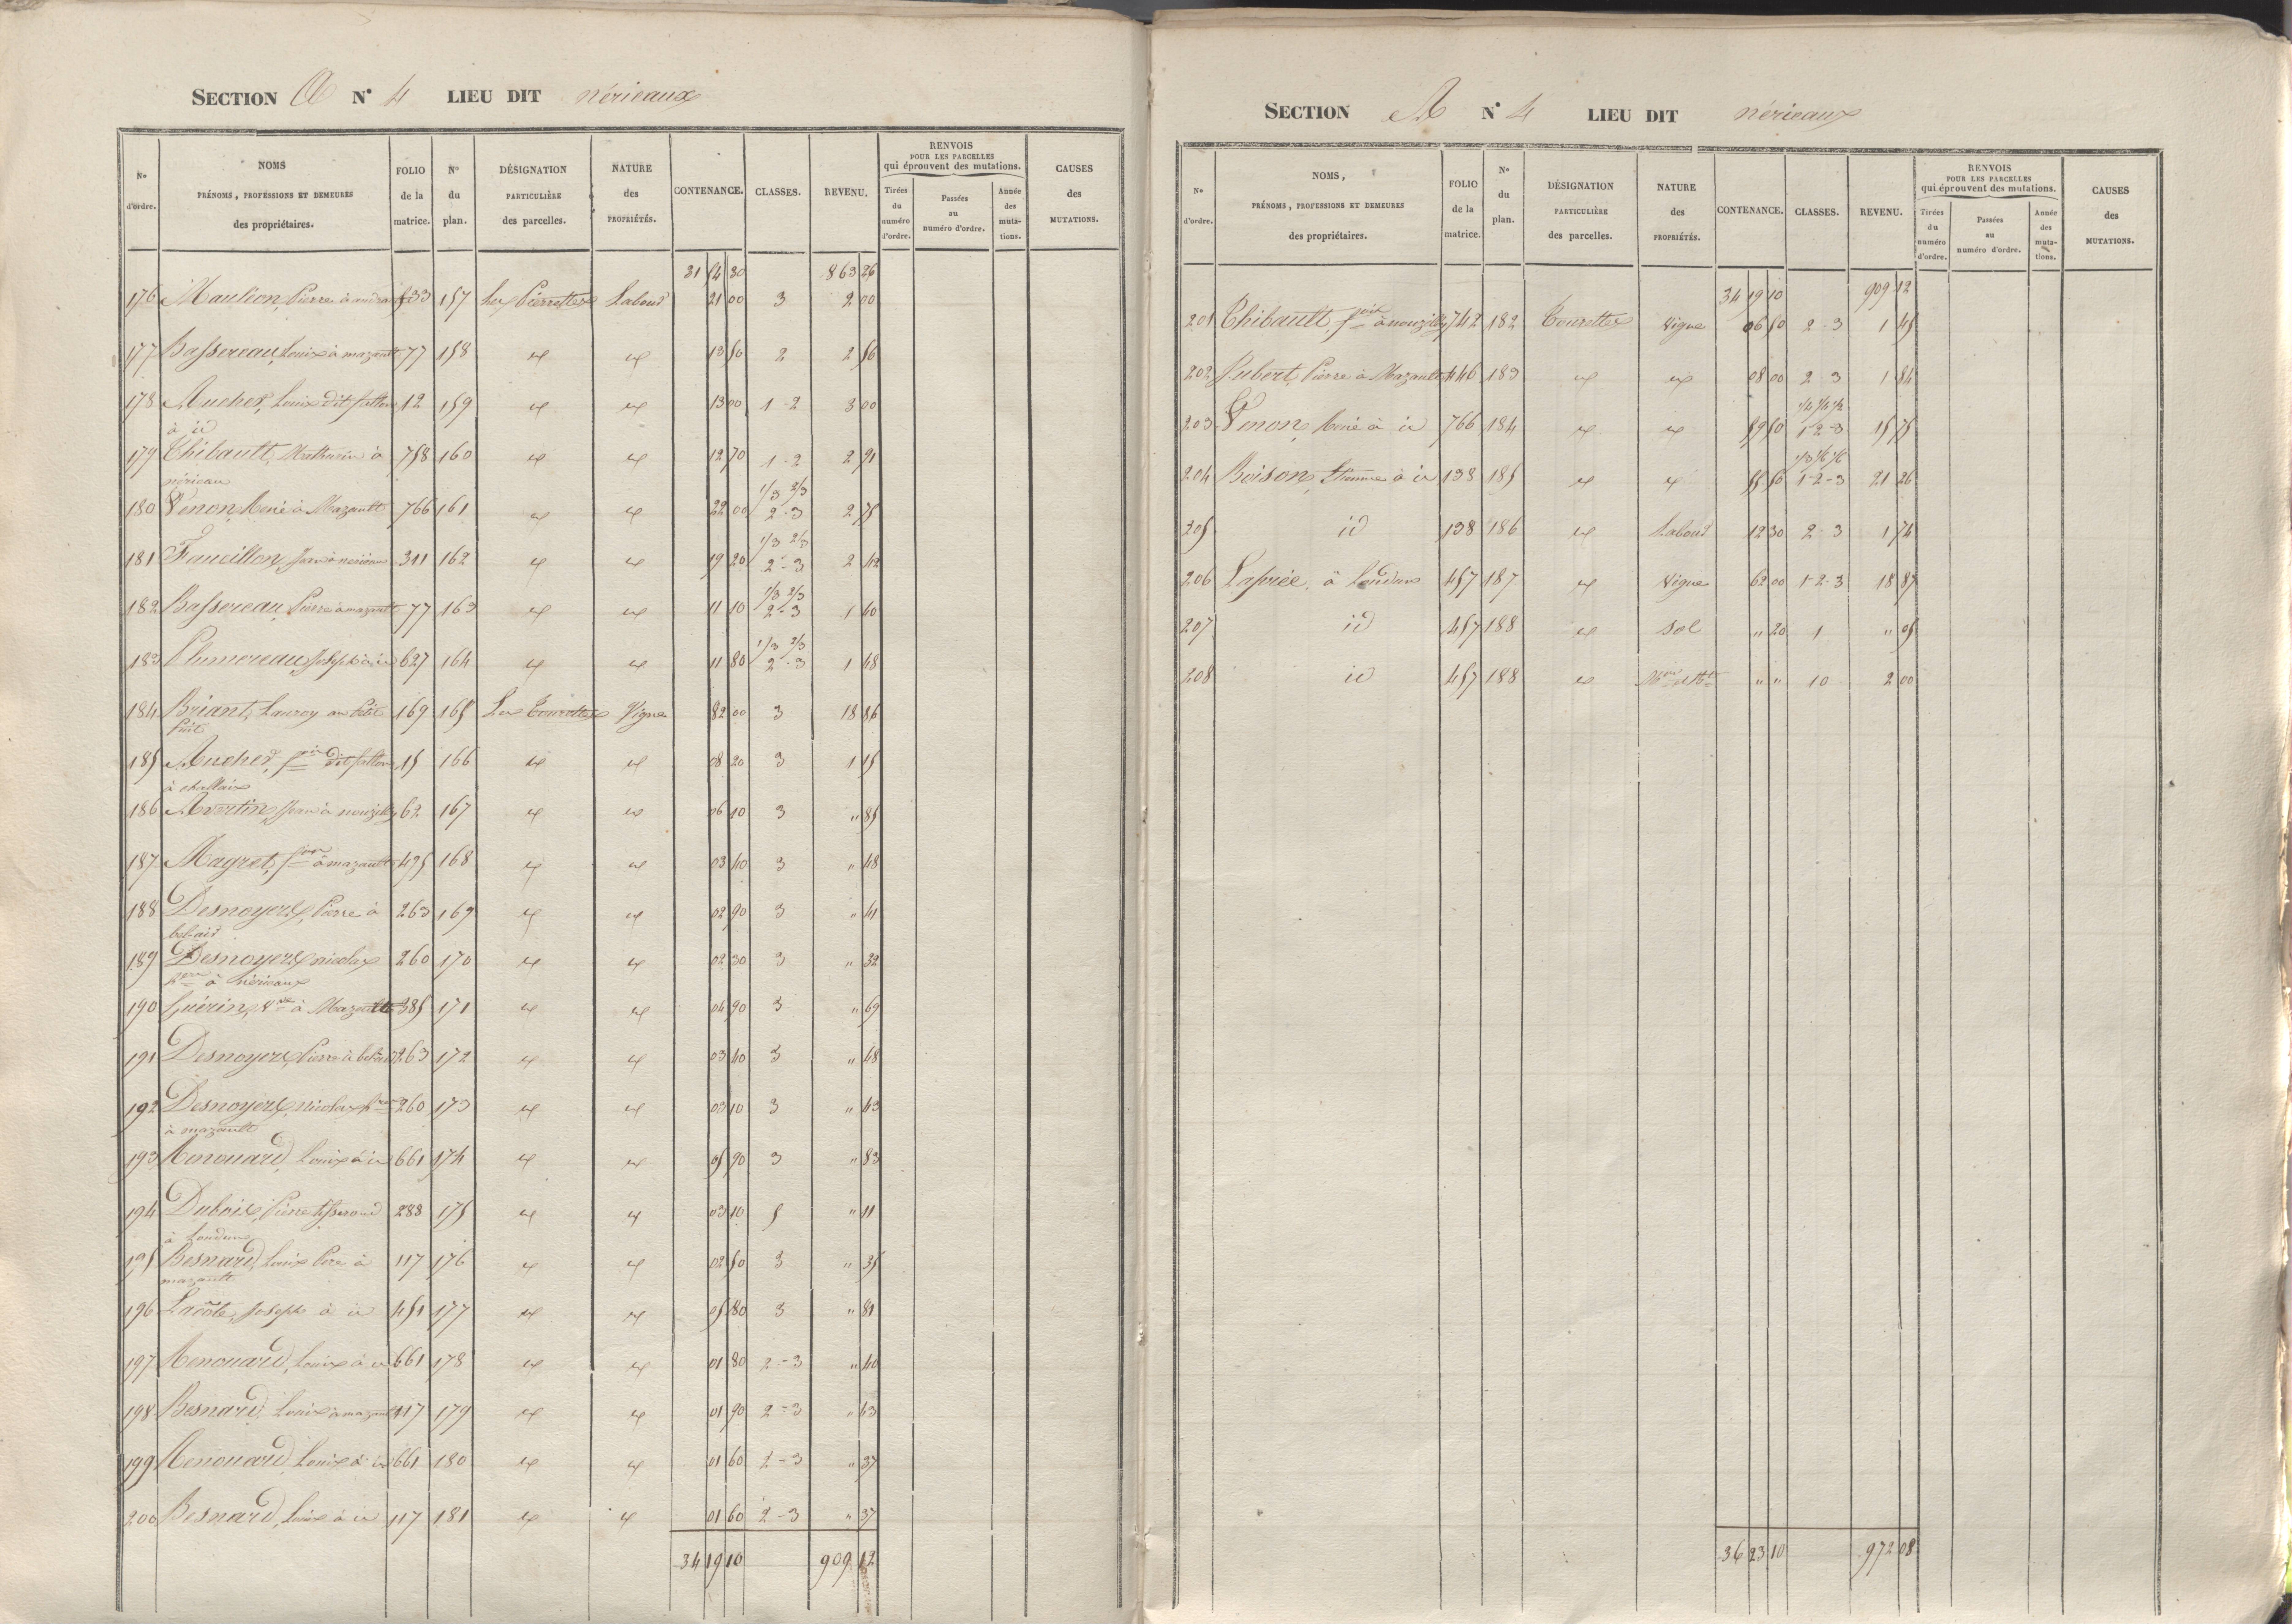 SECTION A N° 4 LIEU DIT nérieaux
N° d'ordre. NOMS PRÉNOMS, PROFESSIONS ET DEMEURES des propriétaires. FOLIO de la matrice. N° du plan. DÉSIGNATION PARTICULIÈRE des parcelles. NATURE des PROPRIÉTÉS. CONTENANCE. CLASSES. REVENU. RENVOIS POUR LES PARCELLES qui éprouvent des mutations. Tirées du numéro d'ordre. Passées au numéro d'ordre. Année des mutations. CAUSES des MUTATIONS.
31 54 30 863 26
176 Mauleon, Pierre à 533 157 les Pierrettes Labour 21 00 3 2 00
177 Bassereau, Louis à mazault 77 158 id id 13 50 2 2 56
178 Aucher, Louis dit 12 159 id id 13 00 1-2 3 00
à id
179 Thibault, Mathurin à 758 160 id id 12 70 1-2 2 91
nérieau
1/3 2/3
180 Venon, René à Mazault 766 161 id id 22 00 2-3 2 75
1/3 2/3
181 Faucillon, Jean à 311 162 id id 19 20 2-3 2 42
1/3 2/3
182 Bassereau, Pierre à mazault 77 163 id id 11 10 2-3 1 40
1/3 2/3
183 Plumereau, Joseph à id 627 164 id id 11 80 2-3 1 48
184 Briant, Lauroy au Petit 169 165 Les Tourettes Vigne 82 00 3 18 86
Puit
185 Aucher, dit 15 166 id id 08 20 3 1 15
à challais
186 Avertin, Jean à nouzilly 62 167 id id 06 10 3 " 85
187 Mayret, à mazault 495 168 id id 03 40 3 " 48
188 Desnoyers, Pierre à 263 169 id id 02 90 3 " 41
belair
189 Desnoyers, nicolas 260 170 id id 02 30 3 " 32
à nérieaux
190 Guérin, Vve à Mazault 385 171 id id 04 90 3 " 69
191 Desnoyers, Pierre à belair 263 172 id id 03 40 3 " 48
192 Desnoyers, nicolas 260 173 id id 03 10 3 " 43
à mazault
193 Renouard, Louis à id 661 174 id id 05 90 3 " 83
194 Dubois, Pierre tisserand 288 175 id id 03 10 5 " 11
à Loudun
195 Besnard, Louis Père à 117 176 id id 02 50 3 " 35
mazault
196 Lacôte, Joseph à id 451 177 id id 05 80 3 " 81
197 Renouard, Louis à id 661 178 id id 01 80 2-3 " 40
198 Besnard, Louis à mazault 117 179 id id 01 90 2-3 " 43
199 Renouard, Louis à id 661 180 id id 01 60 2-3 " 37
200 Besnard, Louis à id 117 181 id id 01 60 2-3 " 37
34 19 10 909 12
SECTION A N° 4 LIEU DIT nérieaux
N° d'ordre. NOMS, PRÉNOMS, PROFESSIONS ET DEMEURES des propriétaires. FOLIO de la matrice. N° du plan. DÉSIGNATION PARTICULIÈRE des parcelles. NATURE des PROPRIÉTÉS. CONTENANCE. CLASSES. REVENU. RENVOIS POUR LES PARCELLES qui éprouvent des mutations. Tirées du numéro d'ordre. Passées au numéro d'ordre. Année des mutations. CAUSES des MUTATIONS.
34 19 10 909 12
201 Thibault, à nouzilly 742 182 Tourettes Vigne 06 50 2-3 1 45
202 Hubert, Pierre à Mazault 446 183 id id 08 00 2-3 1 84
1/4 1/4 1/2
203 Venon, René à id 766 184 id id 59 50 1-2-3 15 75
204 Boison, Etienne à id 138 185 id id 55 50 1-2-3 21 26
205 id 138 186 id Labour 12 30 2-3 1 74
206 Laprée, à Loudun 457 187 id Vigne 62 00 1-2-3 18 87
207 id 457 188 id Sol " 20 1 " 05
208 id 457 188 id " " 10 2 00
36 23 10 972 08